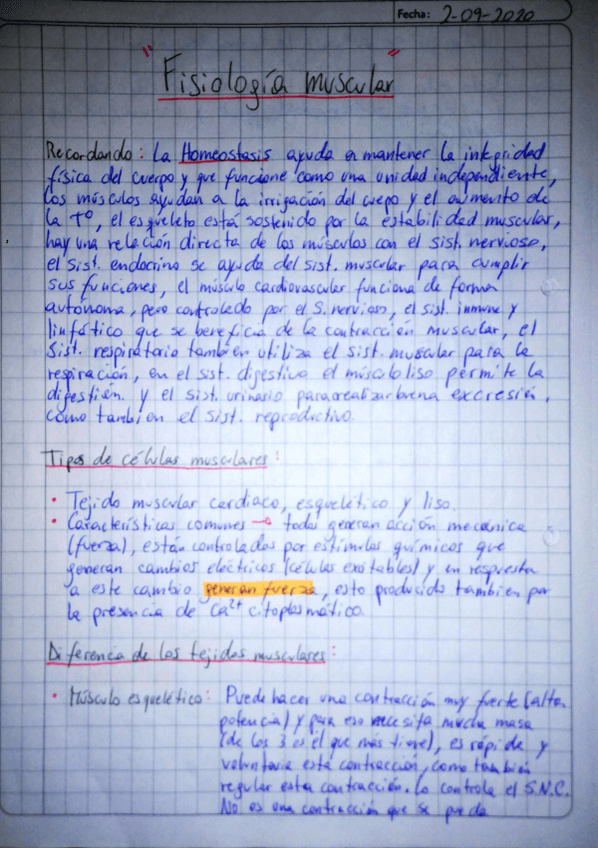 Fecha: 2-09-2020
"Fisiología muscular"
Recordando: La Homeostasis ayuda a mantener la integridad
física del cuerpo y que funcione como una unidad independiente,
los músculos ayudan a la irrigación del cuepo y el aumento de
la T°, el esqueleto está sostenido por la estabilidad muscular,
hay una relación directa de los músculos con el sist. nervioso,
el sist. endocrino se ayuda del sist. muscular para cumplir
sus funciones, el músculo cardiovascular funciona de forma
autónoma, pero controlado por el S. nervioso, el sist. inmune y
linfático que se beneficia de la contracción muscular, el
Sist. respiratorio también utiliza el sist. muscular para la
respiración, en el sist. digestivo el músculo liso permite la
digestión. y el sist. urinario para realizar buena excresión,
como también el sist. reproductivo.
Tipos de células musculares:
• Tejido muscular cardiaco, esquelético y liso.
• Características comunes → todas generan acción mecánica
(fuerza), están controlados por estímulos químicos que
generan cambios eléctricos (células exitables) y en respuesta
a este cambio generan fuerza, esto producido también por
la presencia de Ca²⁺ citoplasmático.
Diferencia de los tejidos musculares:
• Músculo esquelético: Puede hacer una contracción muy fuerte (alta
potencia) y para eso necesita mucha masa
(de los 3 es el que más tiene), es rápida y
voluntaria esta contracción, como también
regular esta contracción. Lo controla el S.N.C.
No es una contracción que se pueda